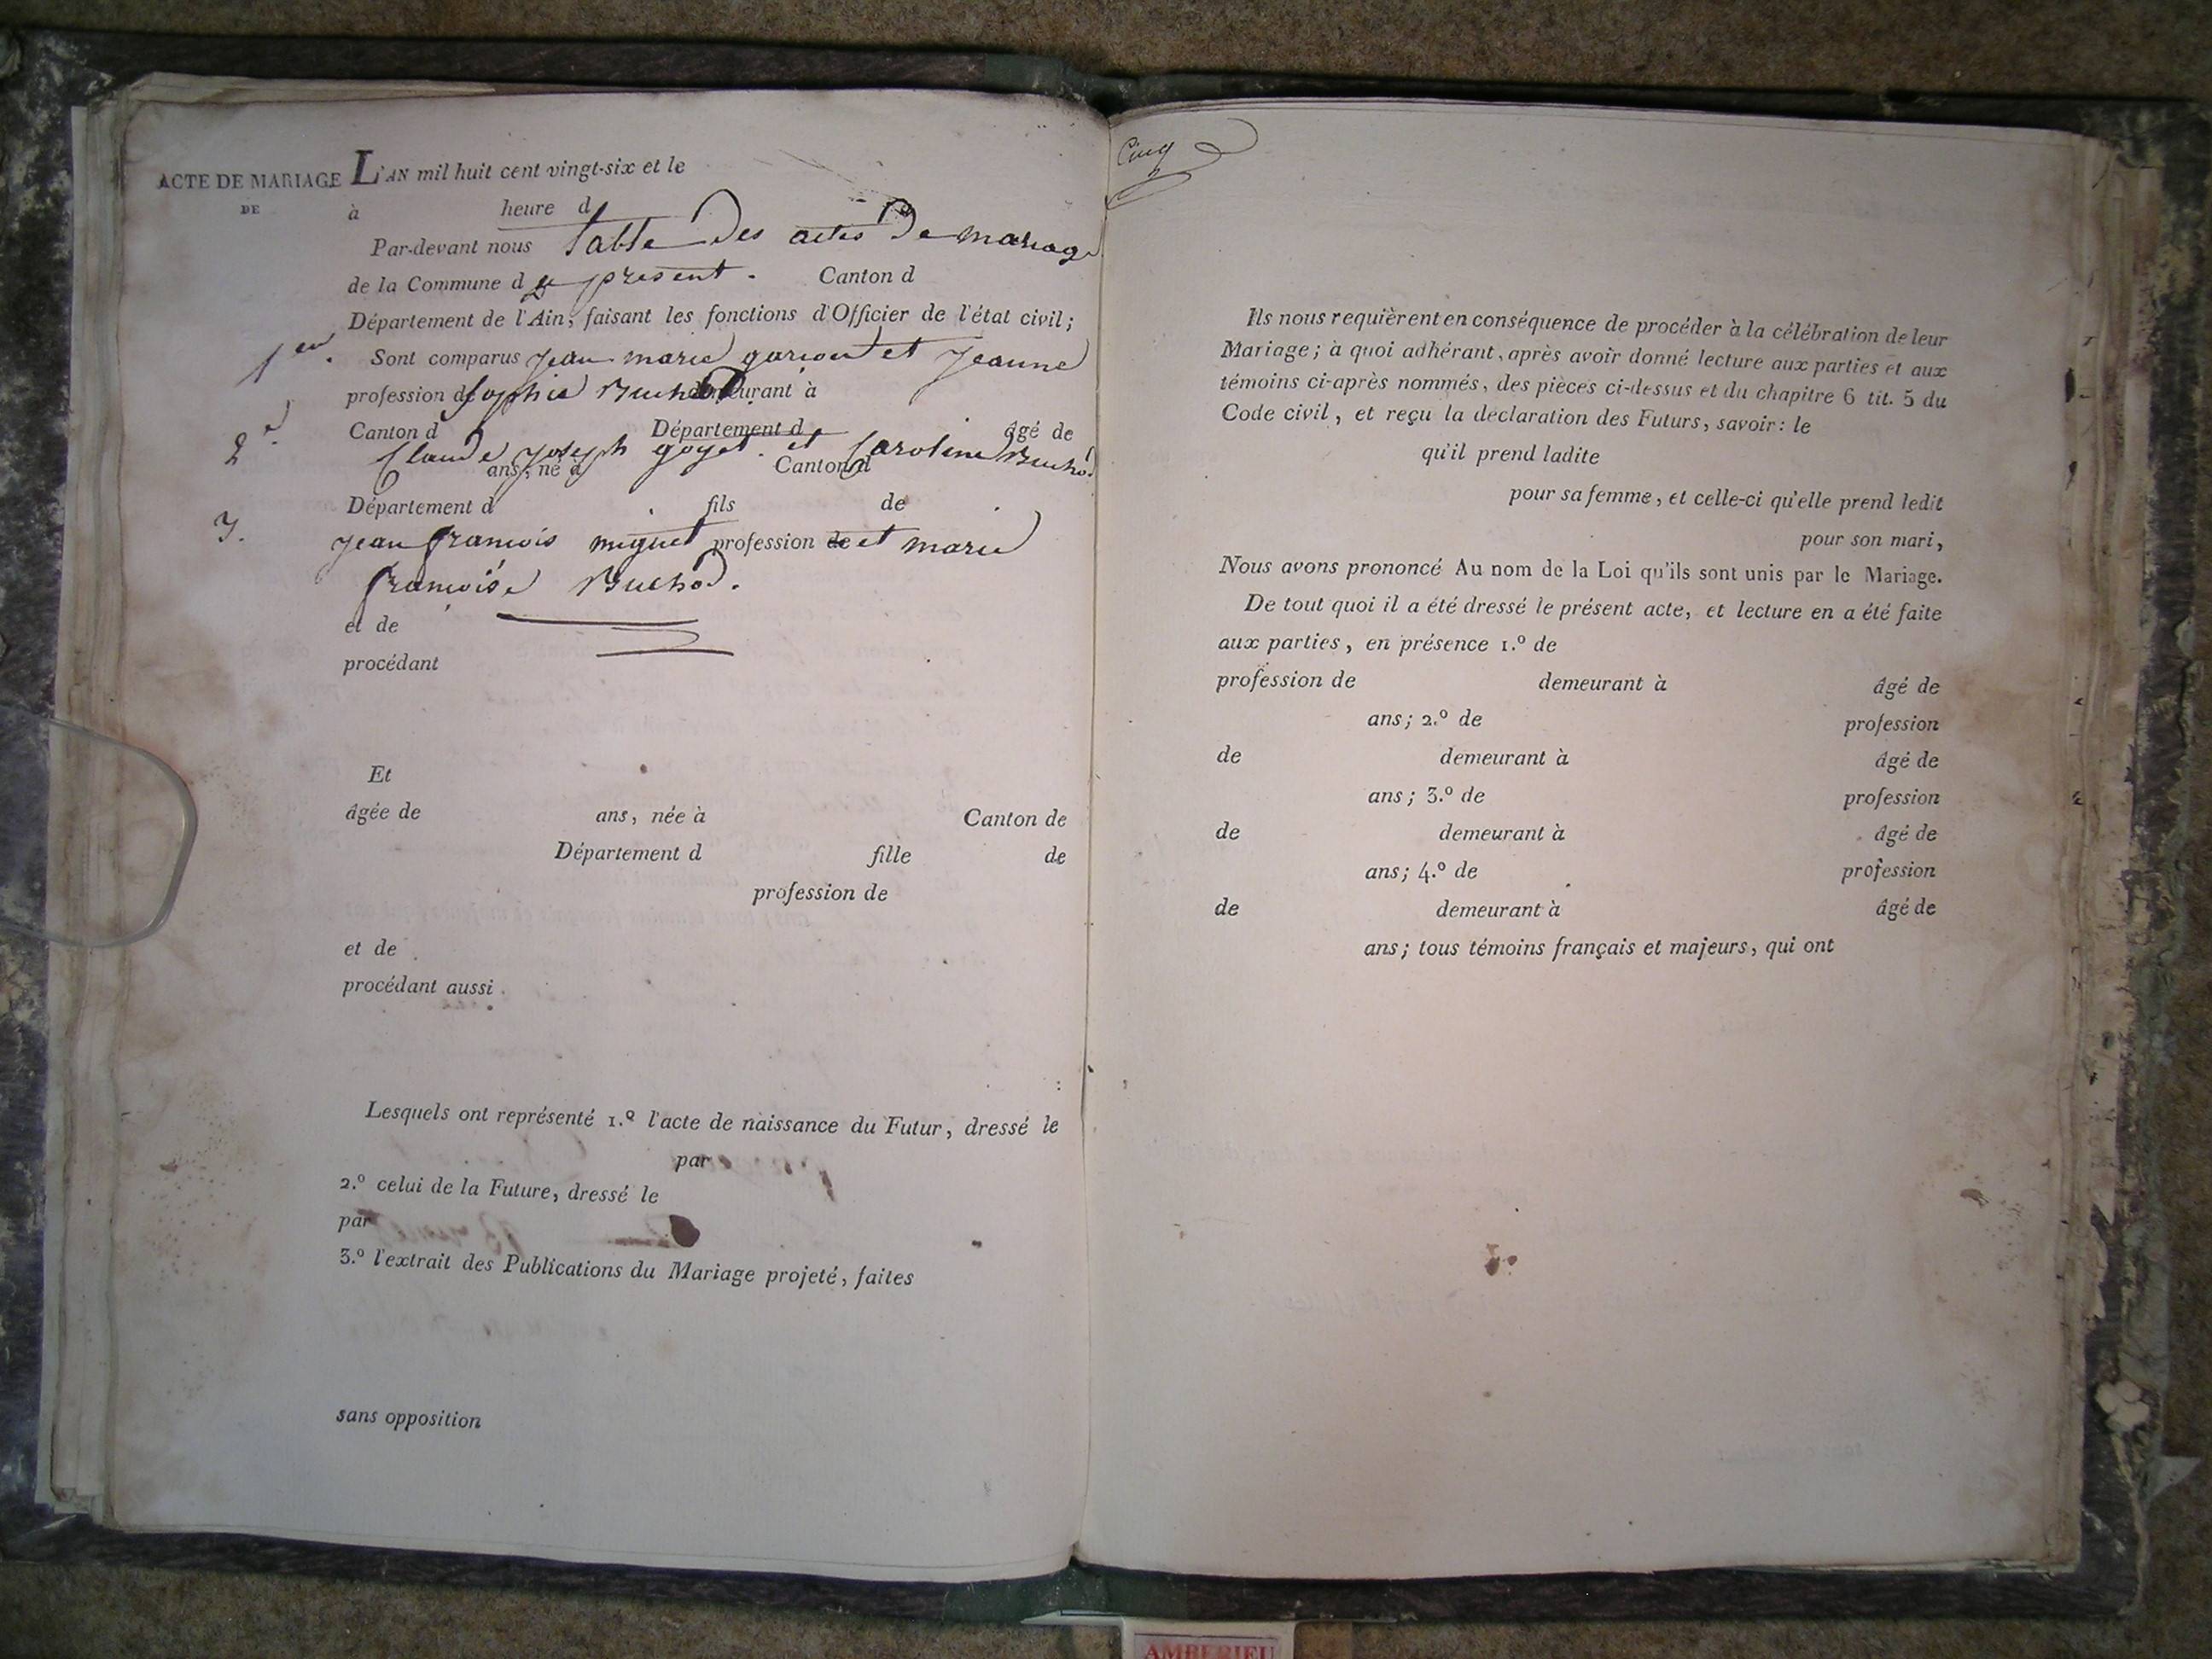 ACTE DE MARIAGE L'AN mil huit cent vingt-six et le
DE à heure d
Par-devant nous table des actes de mariage
de la Commune d du présent. Canton d
Département de l'Ain, faisant les fonctions d'Officier de l'état civil;
1er. Sont comparus jean marie et jeanne
profession de sophie Buchod demeurant à
Canton d Département d âgé de
2e. Claude joseph goyet et Caroline Buchod
ans, né à Canton d
Département d fils de
3. jean francois miguet profession de et marie
francoise Buchod.
et de
procédant
Et
âgée de ans, née à Canton de
Département d fille de
profession de
et de
procédant aussi
Lesquels ont représenté 1.º l'acte de naissance du Futur, dressé le
par
2.º celui de la Future, dressé le
par
3.º l'extrait des Publications du Mariage projeté, faites
sans opposition
Cinq
Ils nous requièrent en conséquence de procéder à la célébration de leur
Mariage; à quoi adhérant, après avoir donné lecture aux parties et aux
témoins ci-après nommés, des pièces ci-dessus et du chapitre 6 tit. 5 du
Code civil, et reçu la déclaration des Futurs, savoir: le
qu'il prend ladite
pour sa femme, et celle-ci qu'elle prend ledit
pour son mari,
Nous avons prononcé Au nom de la Loi qu'ils sont unis par le Mariage.
De tout quoi il a été dressé le présent acte, et lecture en a été faite
aux parties, en présence 1.º de
profession de demeurant à âgé de
ans; 2.º de profession
de demeurant à âgé de
ans; 3.º de profession
de demeurant à âgé de
ans; 4.º de profession
de demeurant à âgé de
ans; tous témoins français et majeurs, qui ont
AMBERIEU